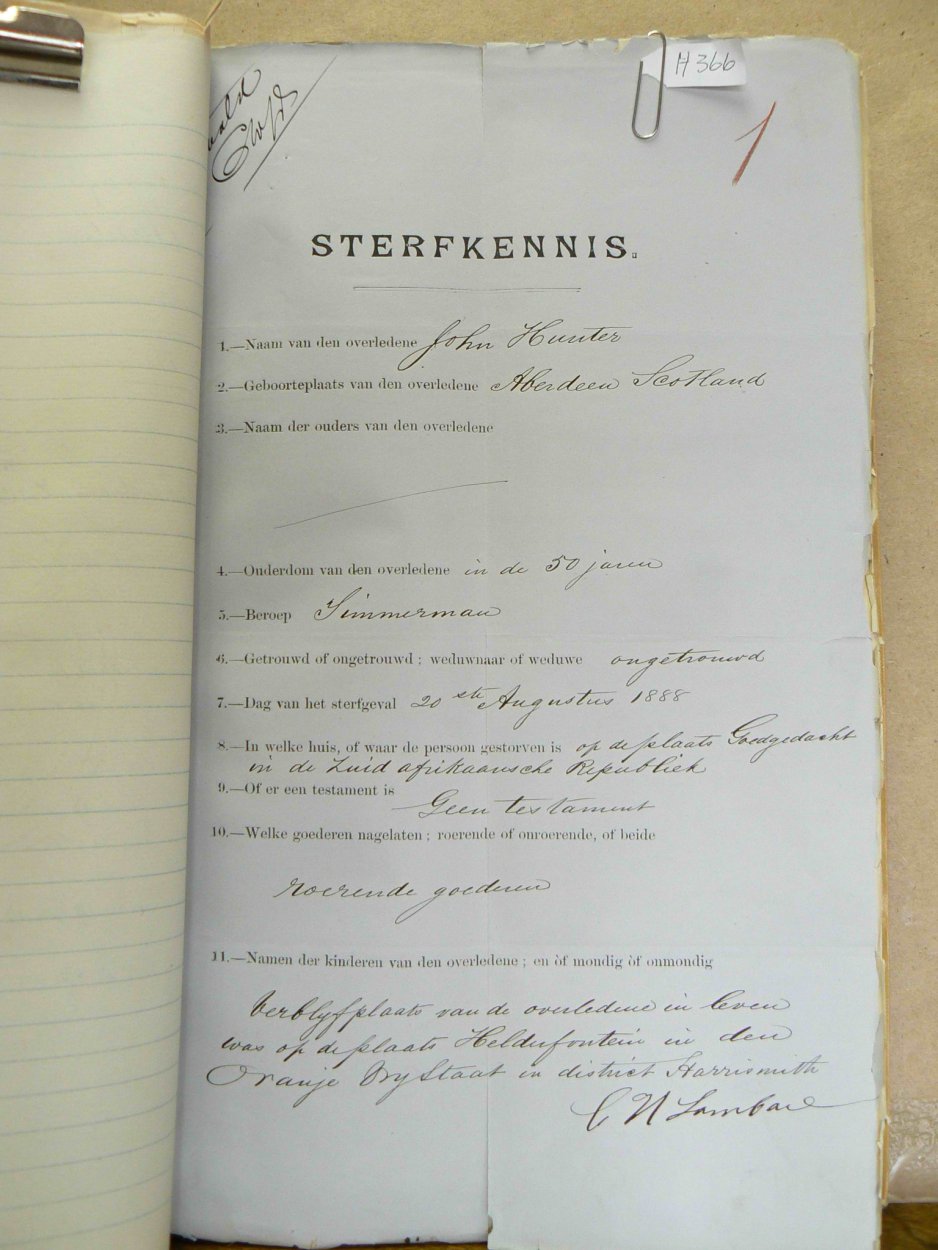 H 366
1
STERFKENNIS.
1.—Naam van den overledene John Hunter
2.—Geboorteplaats van den overledene Aberdeen Scotland
3.—Naam der ouders van den overledene
4.—Ouderdom van den overledene in de 50 jaren
5.—Beroep Timmerman
6.—Getrouwd of ongetrouwd ; weduwnaar of weduwe ongetrouwd
7.—Dag van het sterfgeval 20 ste Augustus 1888
8.—In welke huis, of waar de persoon gestorven is op de plaats Goedgedacht
in de Zuid afrikaansche Republiek
9.—Of er een testament is
Geen testament
10.—Welke goederen nagelaten ; roerende of onroerende, of beide
roerende goederen
11.—Namen der kinderen van den overledene ; en òf mondig òf onmondig
Verblyfplaats van de overledene in leven
was op de plaats Helderfontein in den
Oranje Vry Staat in district Harrismith
C N Lombard